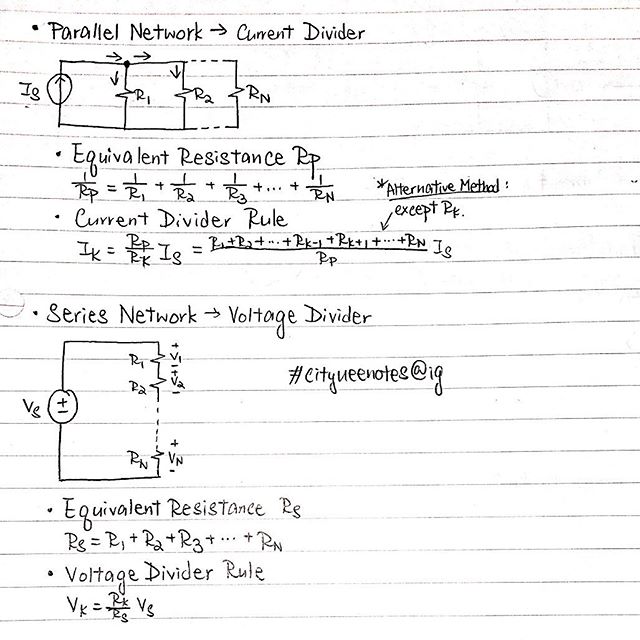 • Parallel Network → Current Divider
Is R1 R2 RN
• Equivalent Resistance Rp
1/Rp = 1/R1 + 1/R2 + 1/R3 + ... + 1/RN
*Alternative Method:
except Rk.
• Current Divider Rule
Ik = Rp/Rk Is = R1+R2+...+Rk-1+Rk+1+...+RN/Rp Is
• Series Network → Voltage Divider
R1 + V1 -
R2 + V2 -
#cityueenotes@ig
Vs + -
RN + VN -
• Equivalent Resistance Rs
Rs = R1 + R2 + R3 + ... + RN
• Voltage Divider Rule
Vk = Rk/Rs Vs